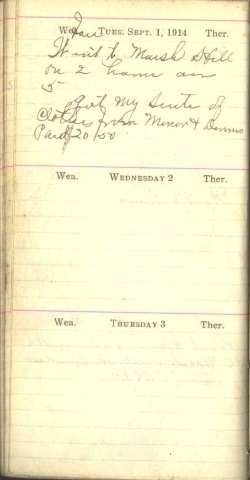 Wea. Tues. Sept. 1, 1914 Ther.
Went to Marsh Hill
on 2 hame on
5
Got My Suite of
Clothes from Minor &
Paid 20/50
Wea. Wednesday 2 Ther.
Wea. Thursday 3 Ther.